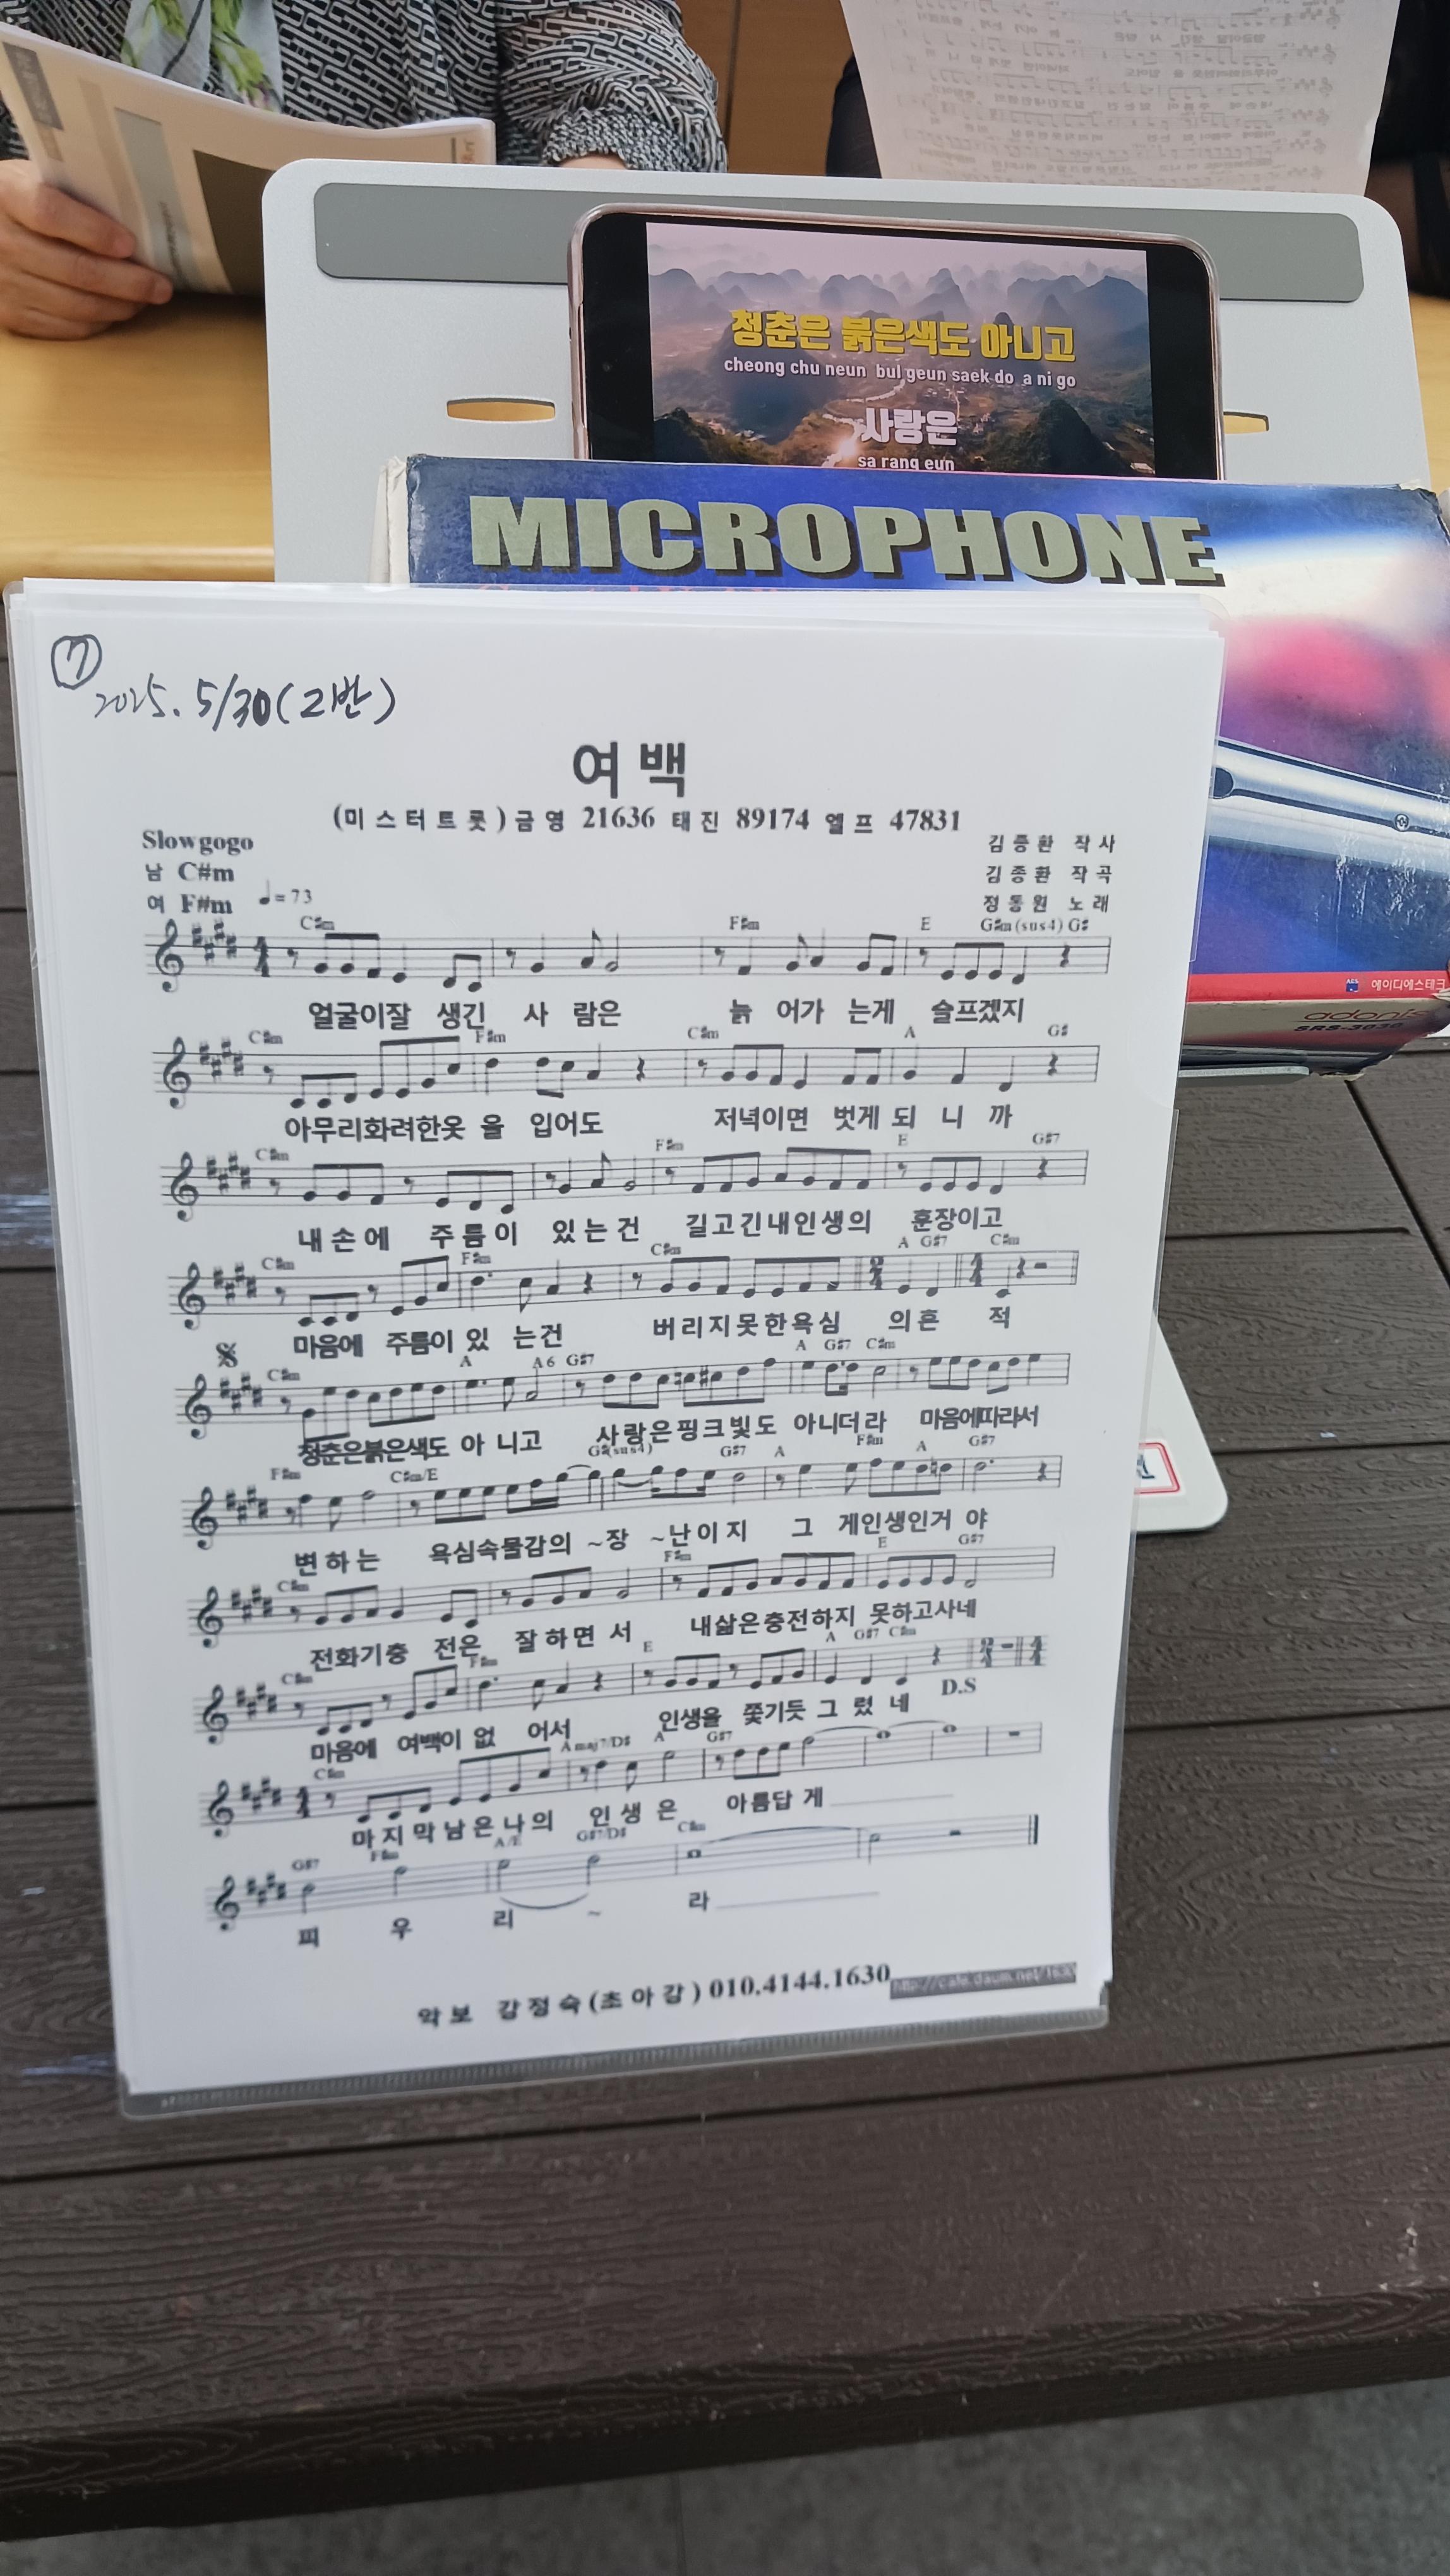 청춘은 붉은색도 아니고
cheong chu neun bul geun saek do a ni go
사랑은
sa rang eun
MICROPHONE
에이디에스테크
adonis
SRS-3030
⑦
2025. 5/30(2반)
여백
(미스터트롯)금영 21636 태진 89174 엘프 47831
Slow gogo
김종환 작사
남 C#m
김종환 작곡
여 F#m ♩=73
정동원 노래
C#m F#m E G#m(sus4) G#
얼굴이잘 생긴 사 람은 늙 어가 는게 슬프겠지
C#m F#m C#m A G#
아무리화려한옷 을 입어도 저녁이면 벗게 되 니 까
C#m F#m E G#7
내손에 주름이 있는건 길고긴내인생의 훈장이고
C#m F#m C#m A G#7 C#m
마음에 주름이 있 는건 버리지못한욕심 의흔 적
C#m A A6 G#7 A G#7 C#m
청춘은붉은색도 아 니고 사랑은핑크빛도 아니더라 마음에따라서
F#m C#m/E G#(sus4) G#7 A F#m A G#7
변하는 욕심속물감의 ~장 ~난이지 그 게인생인거 야
C#m F#m E G#7
전화기충 전은 잘하면 서 내삶은충전하지 못하고사네
C#m F#m E A G#7 C#m
마음에 여백이 없 어서 인생을 쫓기듯 그 렸 네
D.S
C#m Amaj7/D# A G#7
마지막남은나의 인 생 은 아름답 게
G#7 F#m A/E G#7/D# C#m
피 우 리 ~ 라
악보 강정숙(초아강) 010.4144.1630